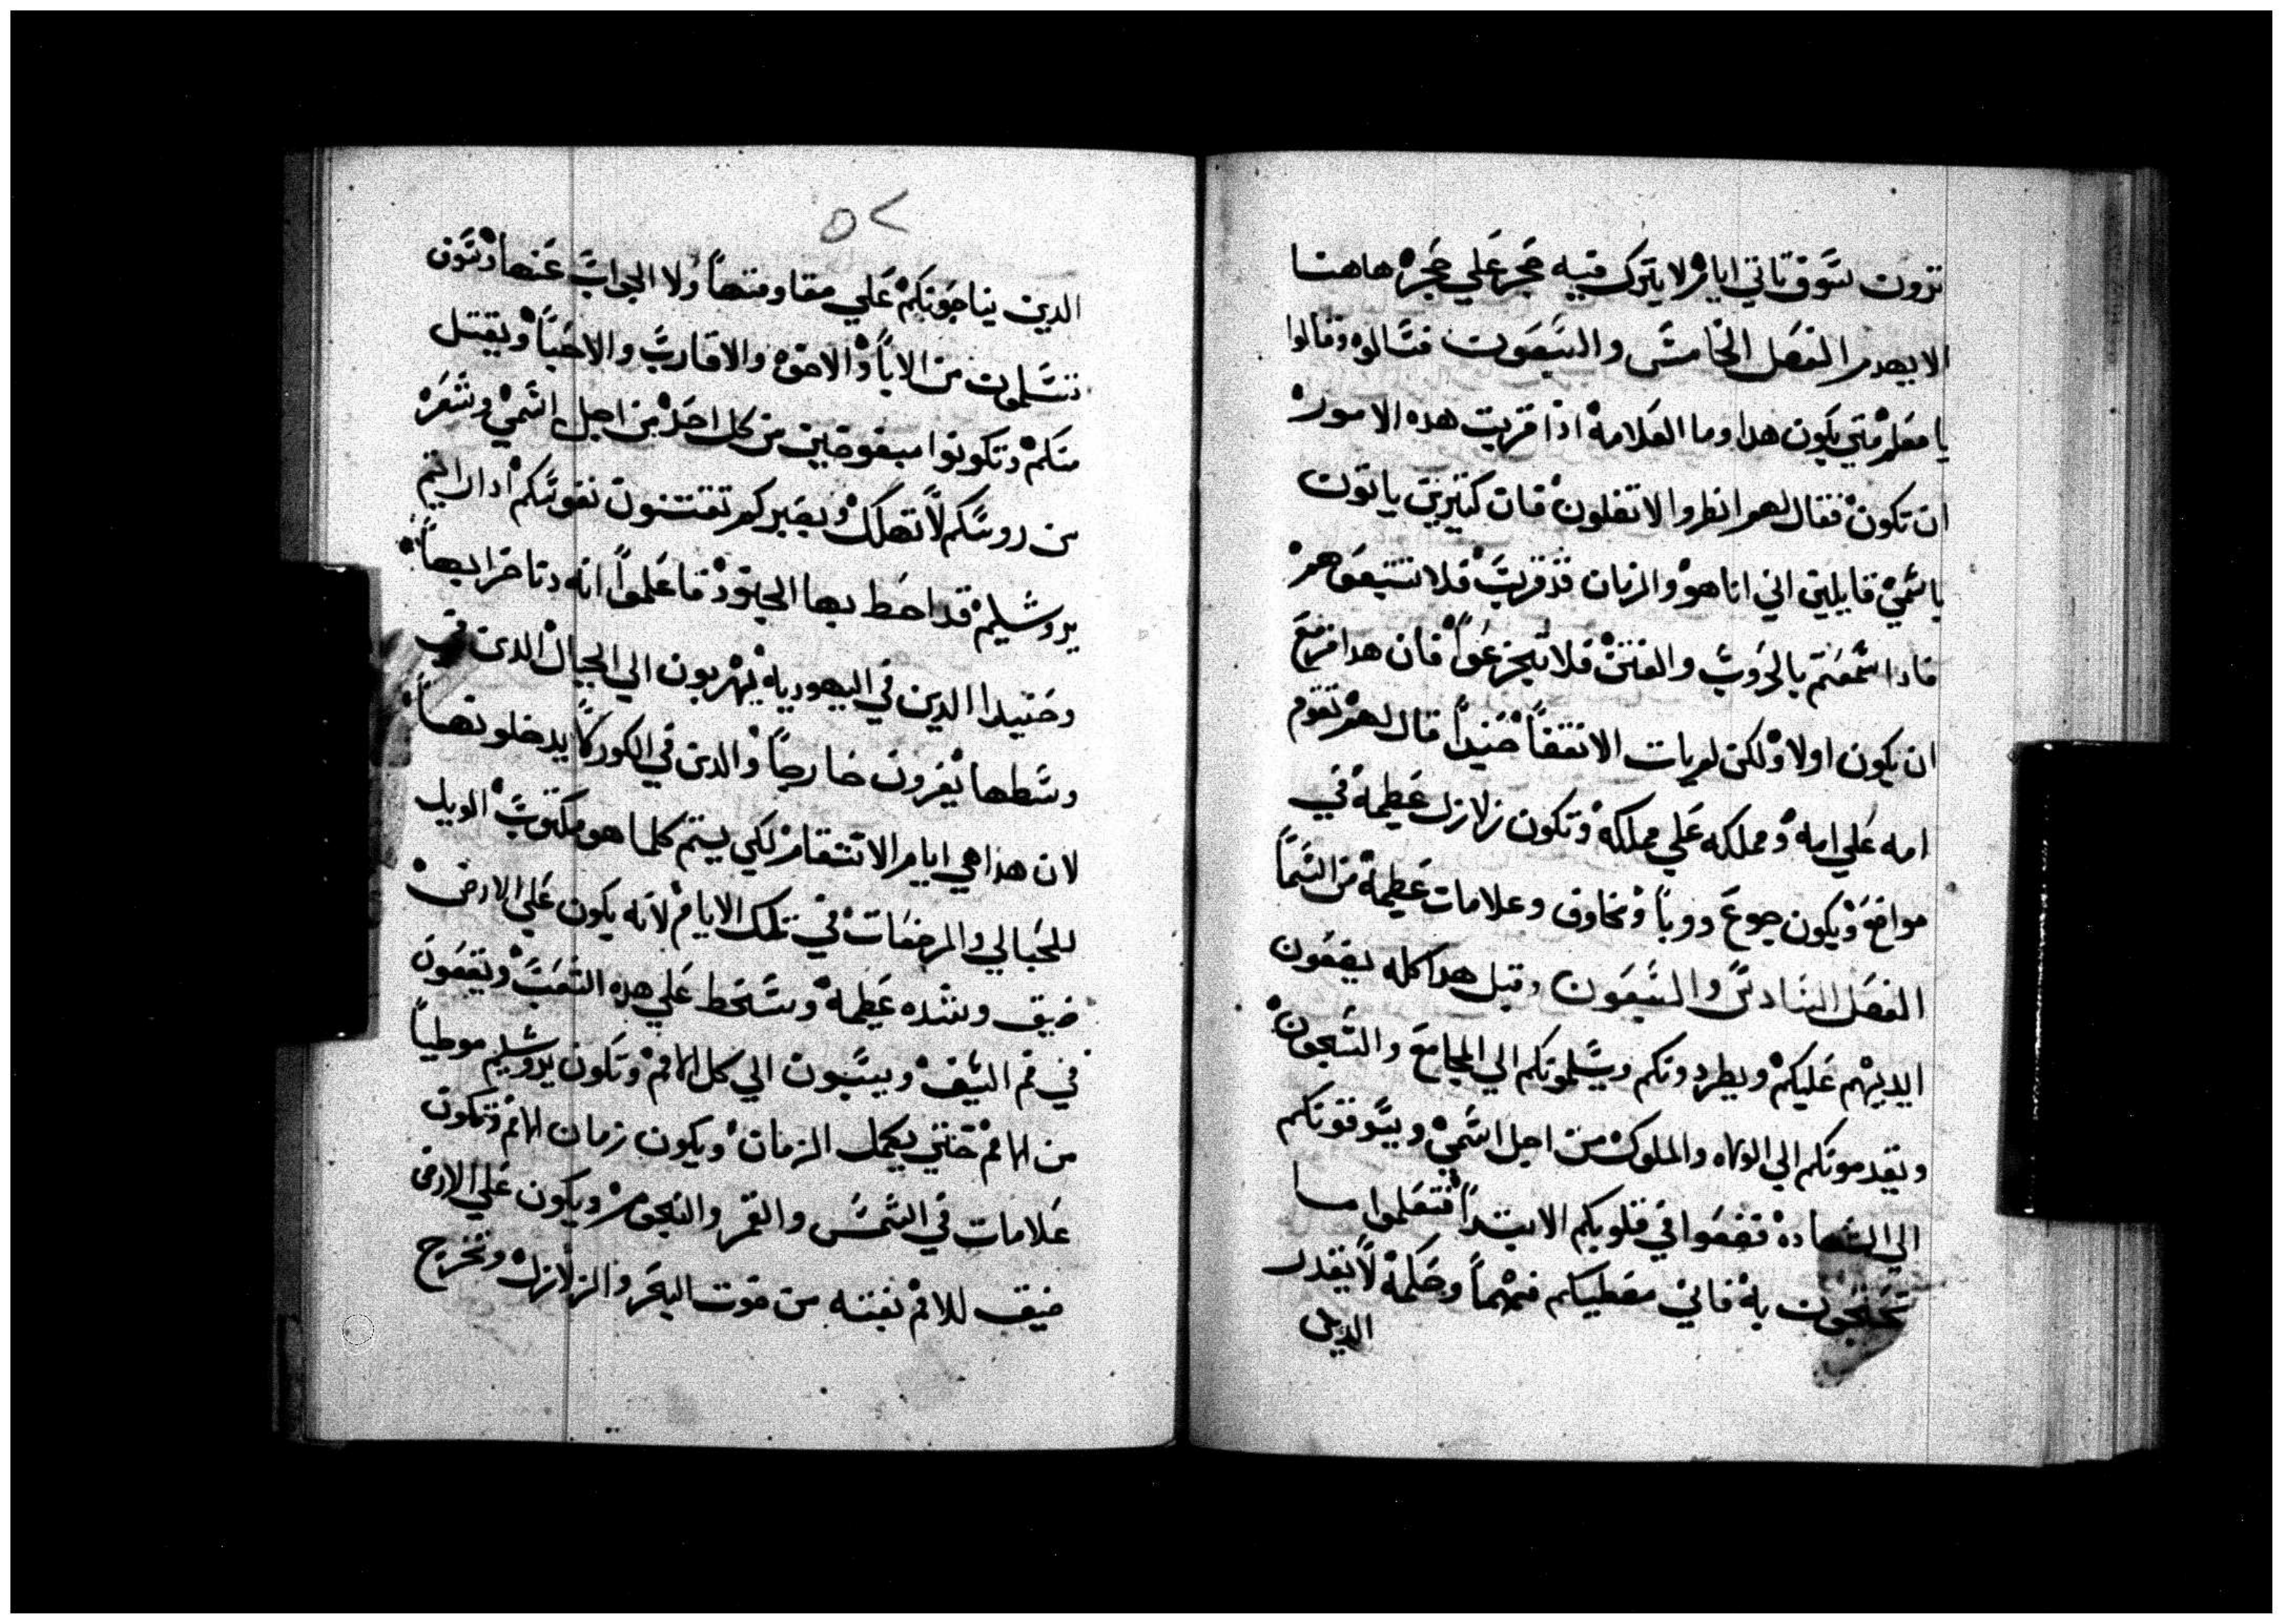 ترون سوف تاتي ايام لا يترك فيه حجر علي حجر هاهنا
الا يهدم الفصل الخامس والسبعون فسالوه وقالوا
يا معلم متي يكون هدا وما العلامه ادا قربت هده الامور
ان تكون فقال لهم انظروا لا تضلون فان كتيرين ياتون
باسمي قايلين اني انا هو والزمان قد قرب فلا تتبعوهم
فادا سمعتم بالحروب والفتن فلا تجزعوا فان هدا مزمع
ان يكون اولا ولكن لم يات الانقضا حنيدا قال لهم تقوم
امه علي امه ومملكه علي مملكه وتكون زلازل عظيمه في
مواضع ويكون جوع ووبا ومخاوف وعلامات عظيمه من السما
الفصل السادس والسبعون وقبل هدا كله يضعون
ايديهم عليكم ويطردونكم ويسلمونكم الي المجامع والسجون
ويقدمونكم الي الولاه والملوك من اجل اسمي ويسوقونكم
الي الشهاده فضعوا في قلوبكم الا تبتدا فتعلموا ما
تحتجون به فاني معطيكم فهما وحكمه لا يقدر
الدين
٥٢
الدين يناصبونكم علي مقاومتها ولا الجواب عنها وسوف
تسلمون من الابا والاخوه والاقارب والاحبا ويقتل
منكم وتكونوا مبغوضين من كل احد من اجل اسمي وشعره
من روسكم لا تهلك وبصبركم تقتنون نفوسكم ادا رايتم
يروشليم قد احط بها الجنود فاعلموا انه دنا خرابها
وحنيدا الدين في اليهوديه يهربون الي الجبال الدين في
وسطها يفرون خارجا والدين في الكور لا يدخلونها
لان هدا هي ايام الانتقام لكي يتم كلما هو مكتوب الويل
للحبالي والمرضعات في تلك الايام لانه يكون علي الارض
ضيق وشده عظيمه وسخط علي هده الشعب ويقعون
في فم السيف ويسبون الي كل الامم وتكون يروشليم موطيا
من الامم حتي يكمل الزمان ويكون زمان الامم وتكون
علامات في الشمس والقمر والنجوم ويكون علي الارض
ضيق للامم بغتة من صوت البحر والزلازل وتخرج